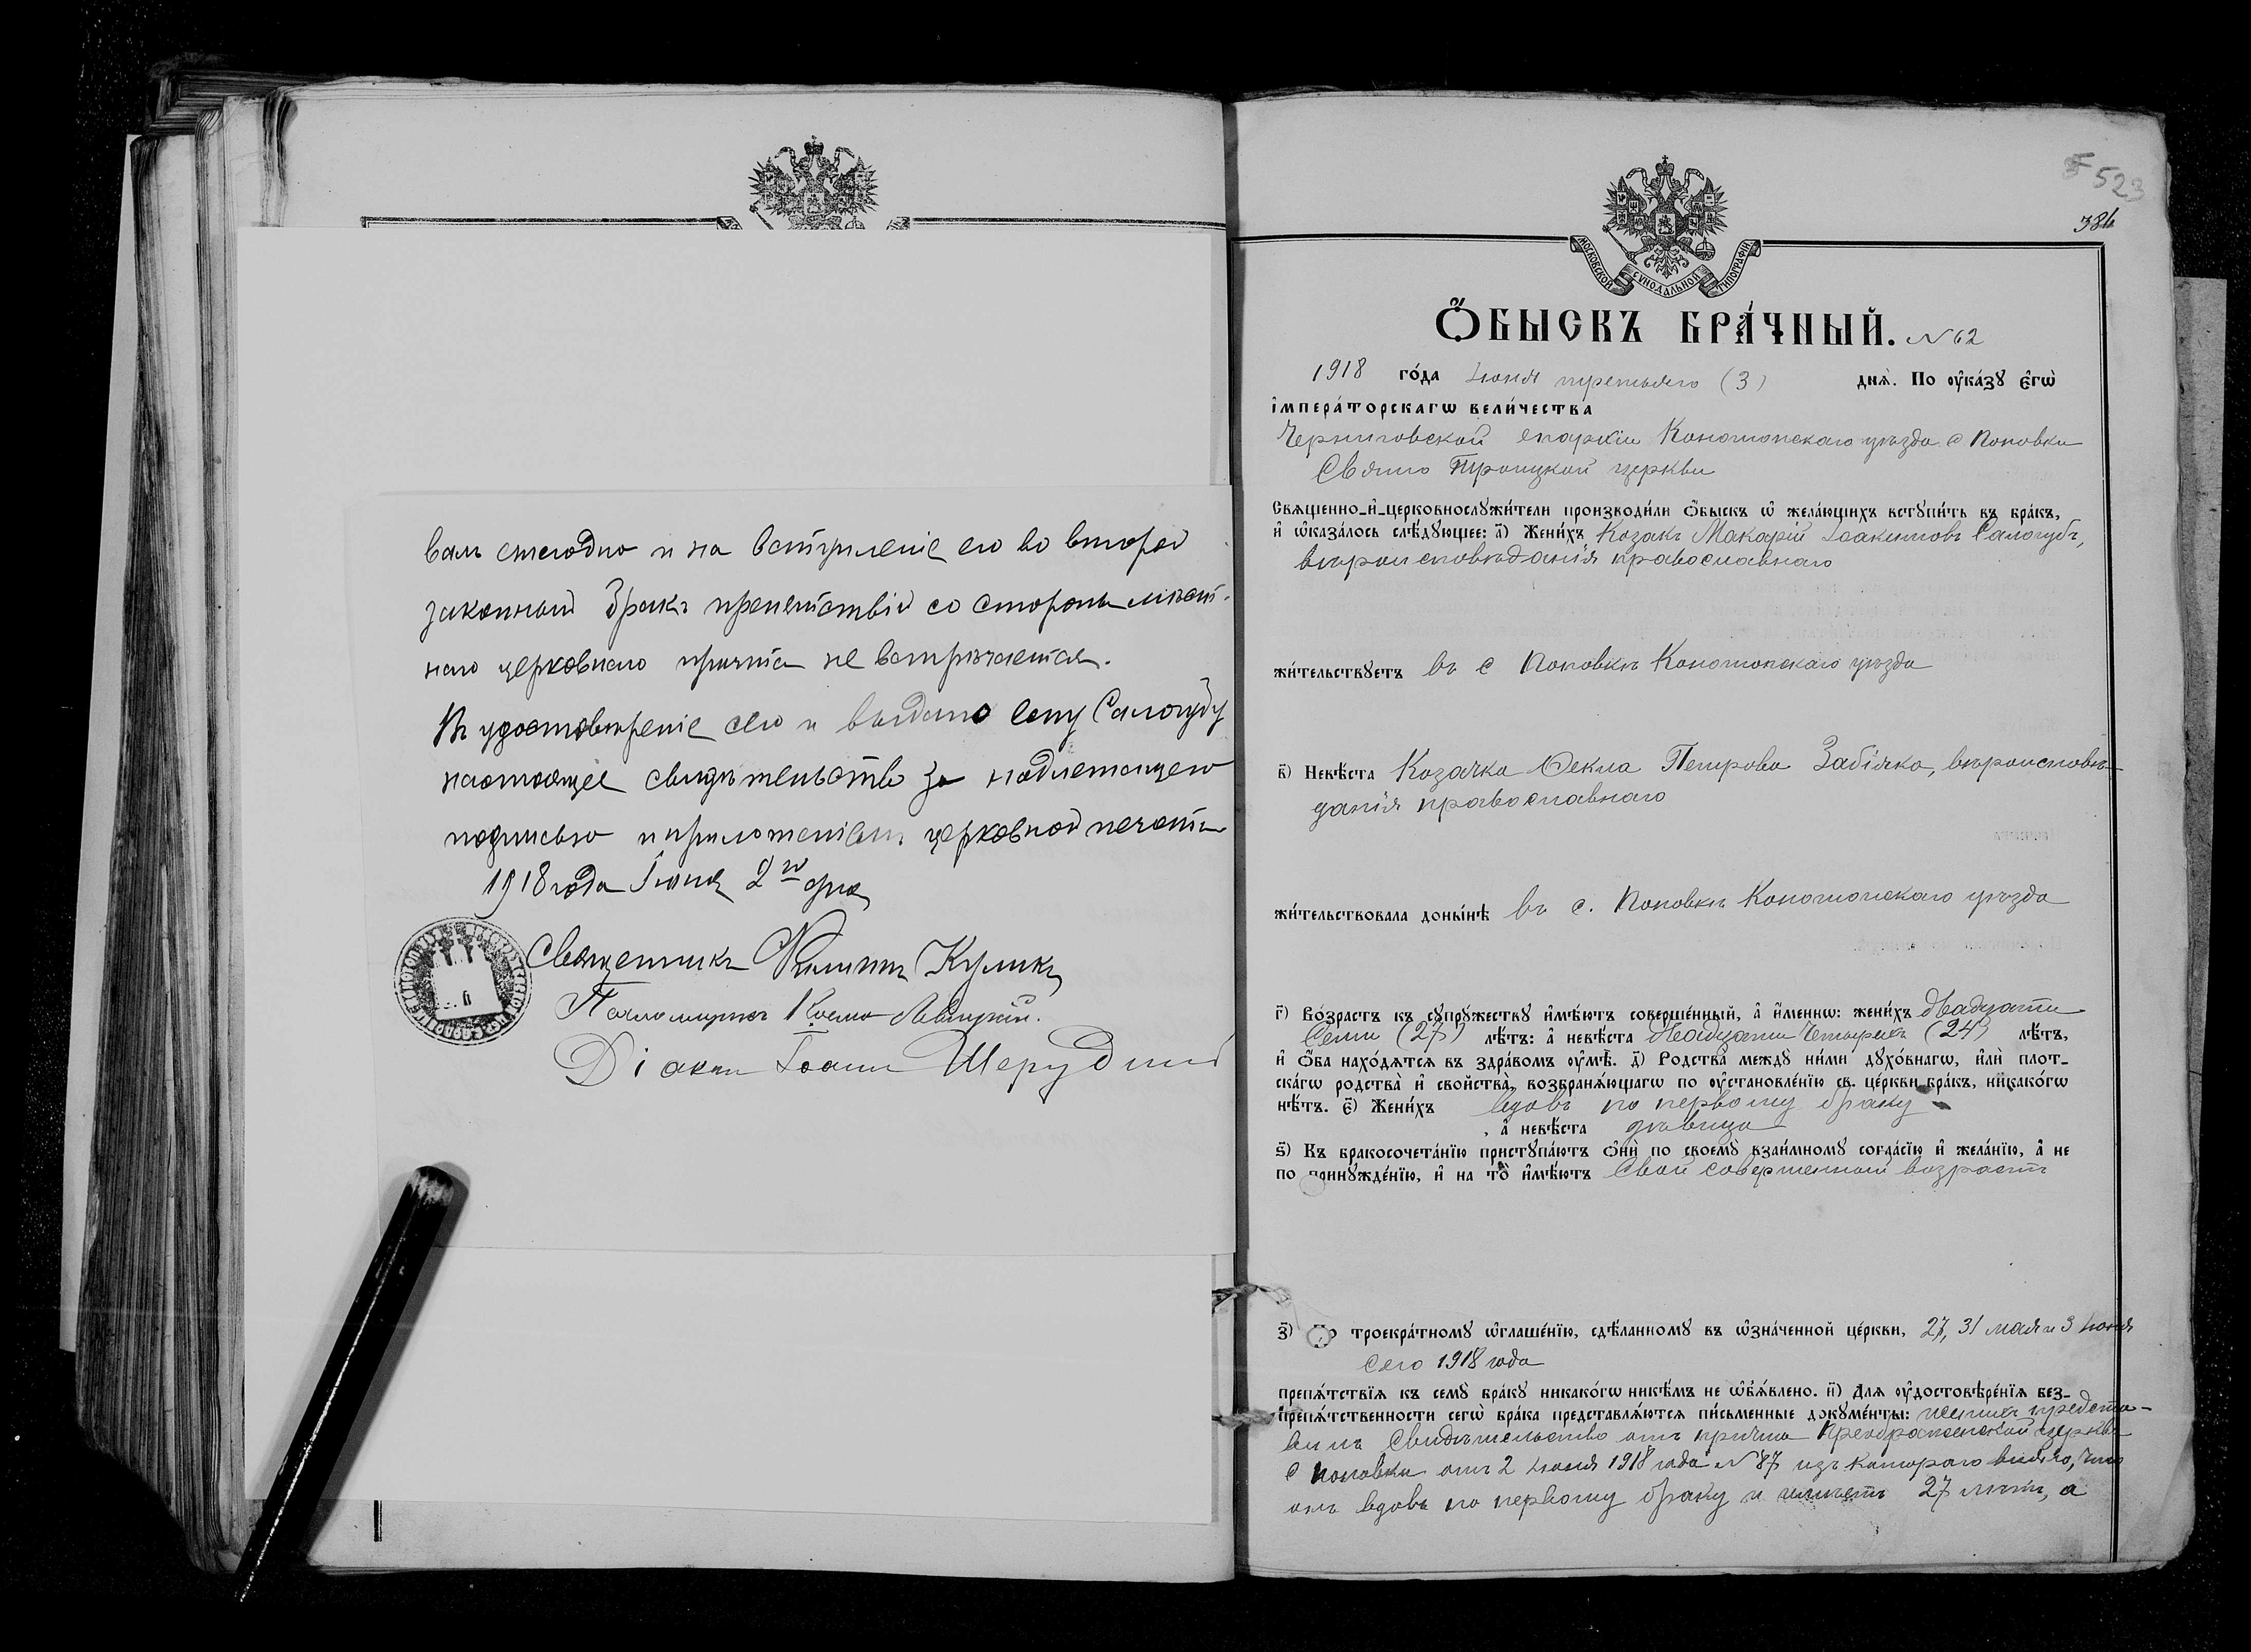 валъ ежегодно и на вступленіе его во второй
законный бракъ препятствій со стороны мѣст-
наго церковнаго причта не встрѣчается.
Въ удостовѣреніе сего и выдано сему Салогубу
настоящее свидѣтельство за надлежащею
подписью и приложеніемъ церковной печати
1918 года Іюня 2го дня
Священникъ Филиппъ Куликъ
Псаломщикъ Косма Левицкій.
Діаконъ Іоаннъ Шерудиній
523
384
МОСКОВСКОЙ СѴНОДАЛЬНОЙ ТИПОГРАФІИ
Ѻ҆БЫСКЪ БРА́ЧНЫЙ. N 62
1918 го́да Іюня третьяго (3) днѧ̀. По ᲂу҆ка́зꙋ є҆гѡ̀
і҆мпера́торскагѡ вели́чества
Черниговской епархіи Конотопскаго уѣзда с Поповки
Свято Троицкой церкви
Свѧщенно-и҆-церковнослꙋжи́тели производи́ли ѻ҆́быскъ ѡ҆ жела́ющихъ встꙋпи́ть въ бра́къ,
и҆ ѡ҆каза́лось слѣ́дꙋющее: а҃) Жени́хъ Козакъ Макарій Іоакимовъ Салогубъ,
вѣроисповѣданія православнаго
жи́тельствꙋетъ въ с Поповкѣ Конотопскаго уѣзда
в҃) Невѣ́ста Козачка Ѳекла Петрова Забіяко, вѣроисповѣ-
данія православнаго
жи́тельствовала доны́нѣ въ с. Поповкѣ Конотопскаго уѣзда
г҃) Во́зрастъ къ сꙋпрꙋ́жествꙋ и҆мѣ́ютъ соверше́нный, а҆ и҆́меннѡ: жени́хъ двадцати
семи (27) лѣ́тъ: а҆ невѣ́ста двадцати четырехъ (24) лѣ́тъ,
и҆ ѻ҆́ба нахо́дѧтсѧ въ здра́вомъ ᲂу҆мѣ̀. д҃) Родства̀ междꙋ̀ ни́ми дꙋхо́внагѡ, и҆лѝ плот-
ска́гѡ родства̀ и҆ свойства̀, возбранѧ́ющагѡ по ᲂу҆становле́нїю св. це́ркви бра́къ, никако́гѡ
нѣ́тъ. є҃) Жени́хъ вдовъ по первому браку
, а҆ невѣ́ста дѣвица
ѕ҃) Къ бракосочета́нїю пристꙋпа́ютъ ѻ҆нѝ по своемꙋ̀ взаи́мномꙋ согла́сїю и҆ жела́нїю, а҆ не
по принꙋжде́нїю, и҆ на то̀ и҆мѣ́ютъ свой совершенный возрастъ
з҃) По троекра́тномꙋ ѡ҆глаше́нїю, сдѣ́ланномꙋ въ ѡ҆зна́ченной це́ркви, 27, 31 мая и 3 Іюня
сего 1918 года
препѧ́тствїѧ къ семꙋ̀ бра́кꙋ никако́гѡ никѣ́мъ не ѡ҆б̾ѧ́влено. и҃) Для ᲂу҆достовѣре́нїѧ без-
препѧ́тственности сегѡ̀ бра́ка представлѧ́ютсѧ пи́сьменные докꙋме́нты: женихъ предста-
вилъ свидѣтельство отъ причта Преображенской церкви
с Поповки отъ 2 Іюня 1918 года N 87 изъ котораго видно, что
онъ вдовъ по первому браку и имѣетъ 27 лѣтъ, а